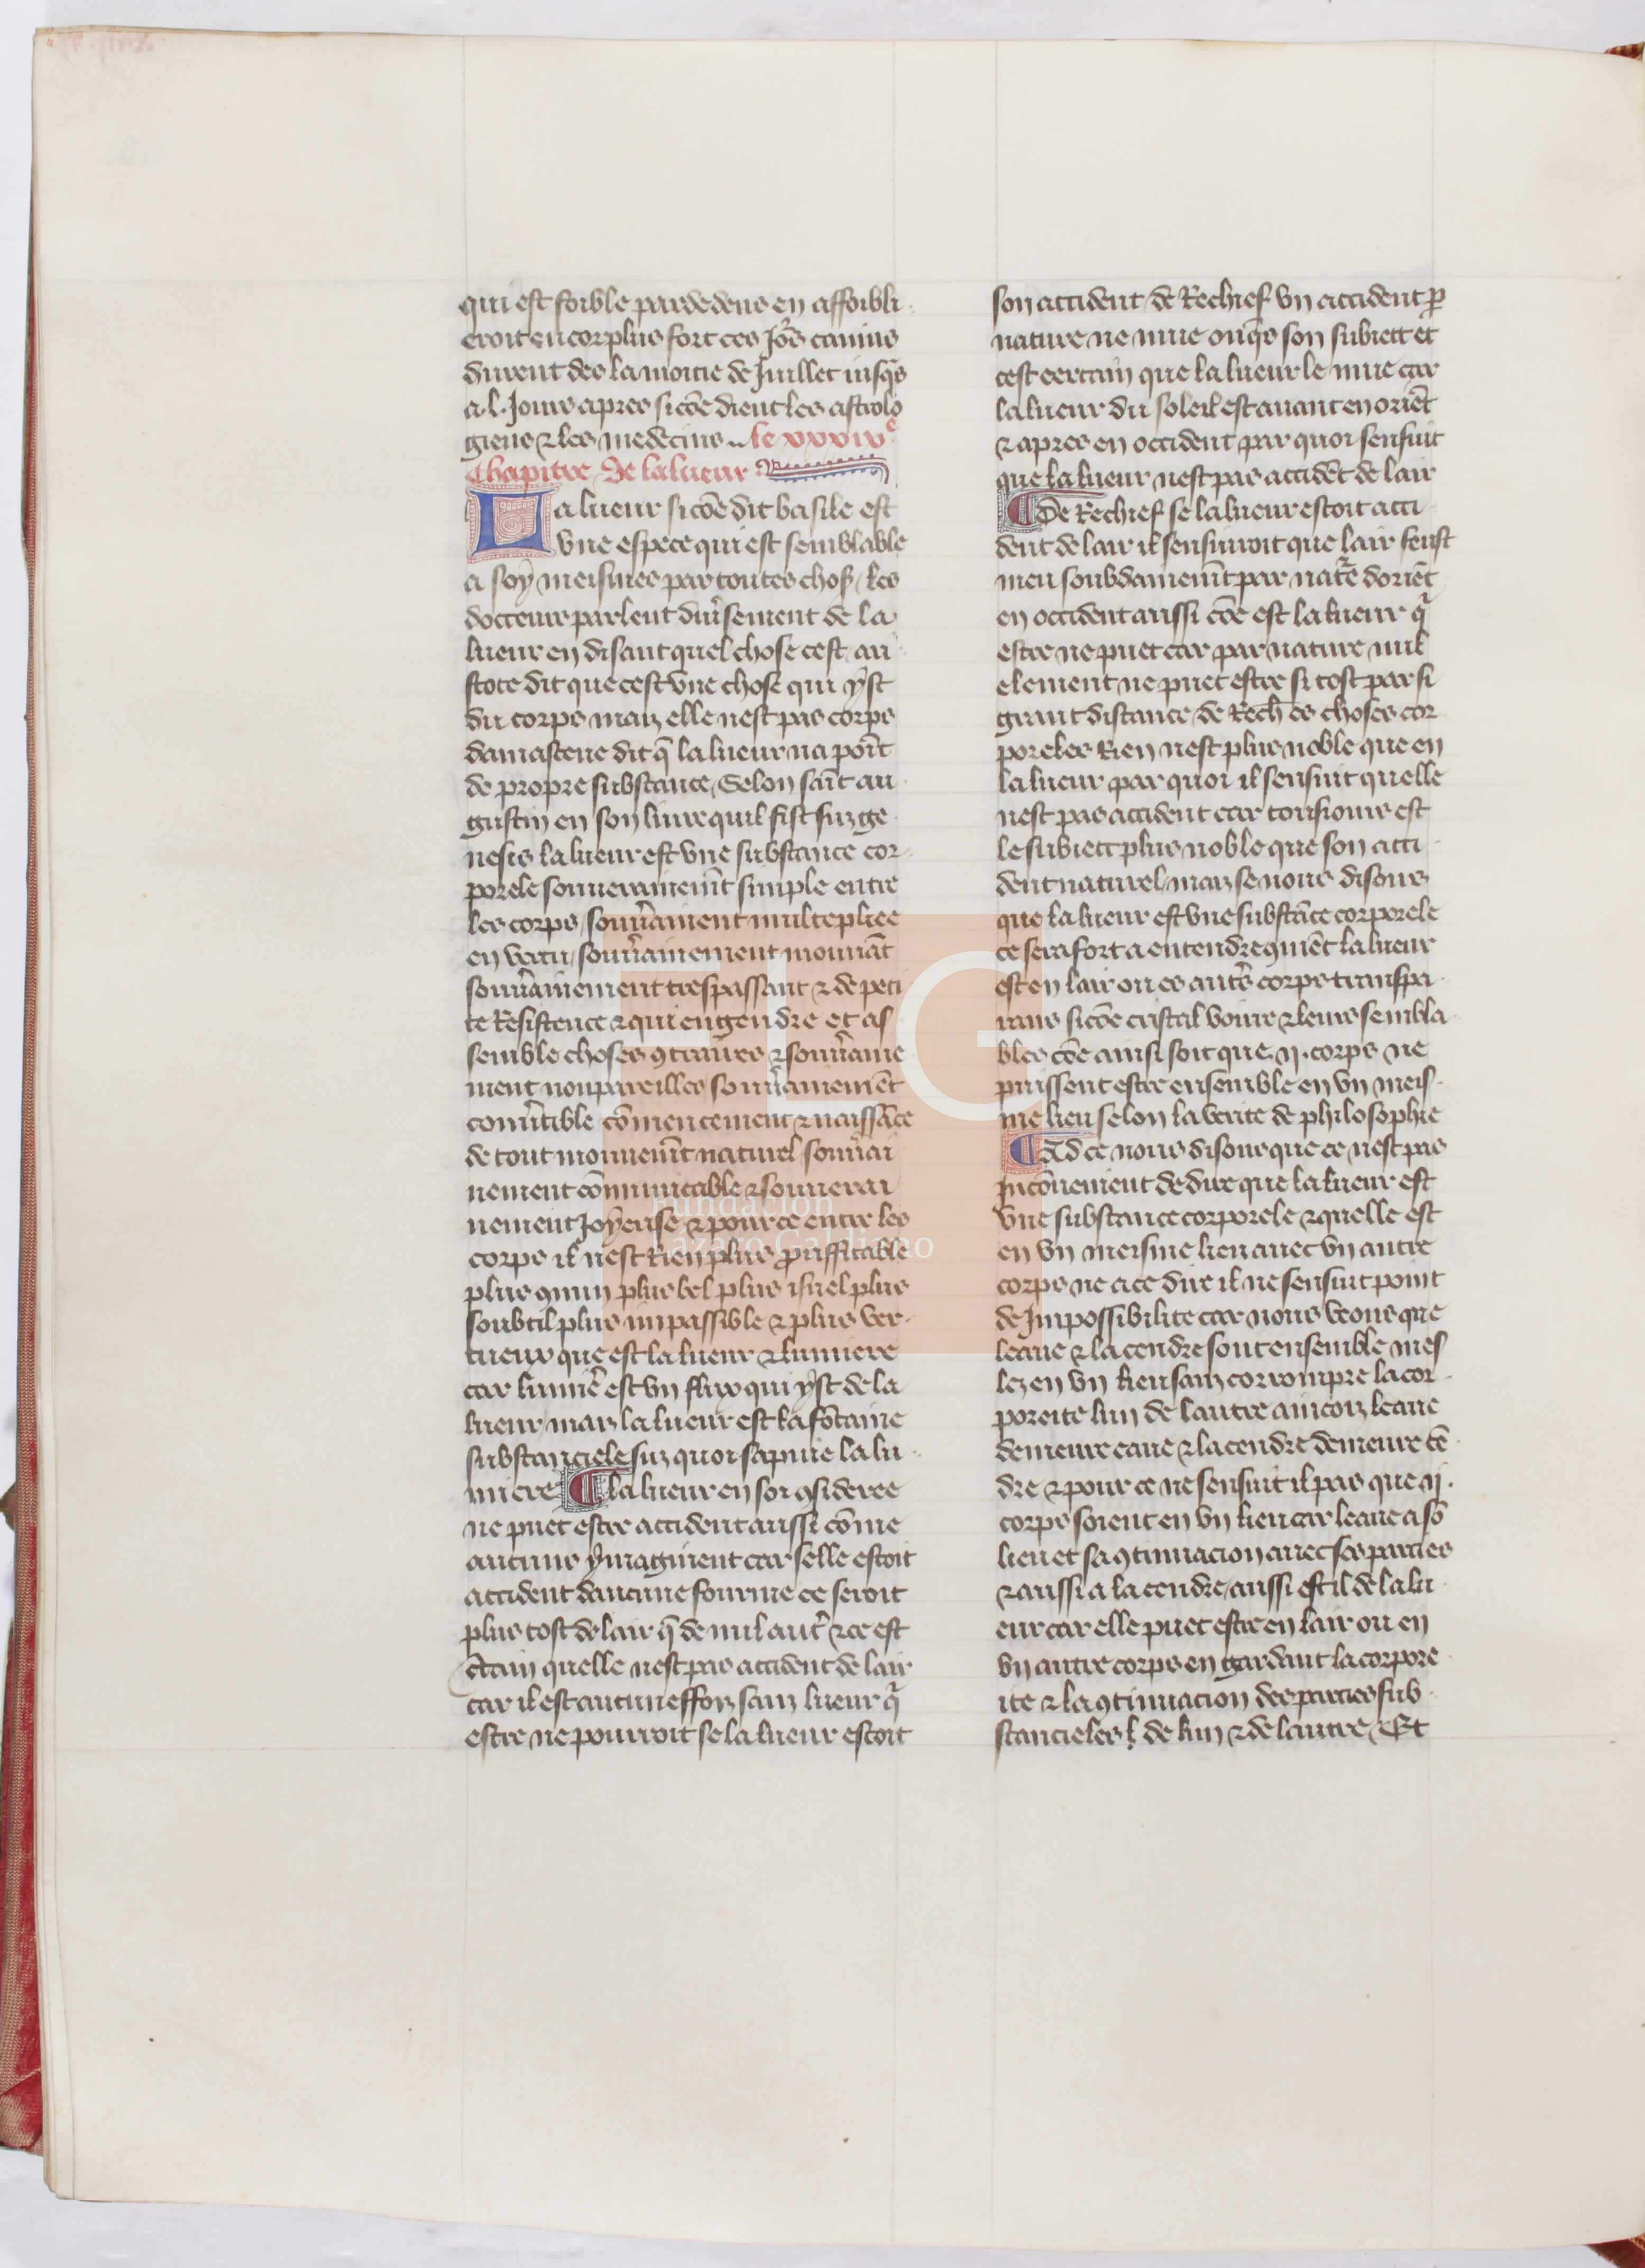 qui est foible par dedens en affoibli
eroit un corp plus fort ces Jo᷑s canins
durent des la moitie de Juillet iusq̃s
a .l. Jours apres si cõe dient les astrolo
giens ⁊ les medecins .. le xxxixᵉ
Chapitre. De la lueur
La lueur si cõe dit basile est
vne espece qui est semblable
a soy meismes par toutes chos / les
docteurs parlent diu̾sement de la
lueur en disant quel chose cest / ari
stote dit que cest vne chose qui yst
du corps maiz elle nest pas corps
damascene dit q̃ la lueur na poĩt
de propre substance / Selon saĩt au
gustin en son liure quil fist suz ge
nesis la lueur est vne substance cor
porele souuerainemẽt simple entre
les corps / souu̾ainent multepliee
en vertu / souu̾ainement mouuãt
souu̾ainement trespassant ⁊ de peti
te Resistence ⁊ qui engendre et as
semble choses ꝯtraires ⁊ souu̾aine
ment nonpareilles souu̾ainemẽt
conu̾tible cõmencement ⁊ naissãce
de tout mouuemẽt naturel souu̾ai
nement cõmunicable ⁊ souuerai
nement Joyeuse ⁊ pour ce entre les
corps il nest Rien plus ꝓuffitable
plus ꝯmun plus bel plus isnel plus
soubtil plus impassible ⁊ plus ver
tueux que est la lueur ⁊ lumiere
car lumie᷑ est vn flux qui yst de la
lueur / maiz la lueur est la fõtaine
substanciele suz quoi sapuie la lu
miere ¶ la lueur en soi ꝯsideree
ne puet estre accident aussi cõme
aucuns ymaginent car selle estoit
accident daucune fourme ce seroit
plus tost de lair q̃ de nul aut᷑ ⁊ ce est
c̾tain quelle nest pas accident de lair
car il est aucuneffoiz sanz lueur q̃
estre ne pourroit se la lueur estoit
son accident / de Rechief vn accident ꝑ
nature ne mue onq̃s son subiect et
cest certain que la lueur le mue car
la lueur du soleil est auant en oriẽt
⁊ apres en occident par quoi sensuit
que la lueur nest pas accidẽt de lair
¶ De Rechief se la lueur estoit acci
dent de lair il sensuiuroit que lair feust
meu soubdainemẽt par nat᷑e doriẽt
en occident aussi cõe est la lueur q̃
estre ne puet car par nature nul
element ne puet estre si tost par si
grant distance / de Rech̃ es choses cor
poreles Rien nest plus noble que en
la lueur par quoi il sensuit quelle
nest pas accident car tousiours est
le subiect plus noble que son acci
dent naturel / maiz se nous disons
que la lueur est vne substãce corporele
ce sera fort a entendre ꝯmẽt la lueur
est en lair ou es autr̾s corps transpa
rans si cõe cristal voirre ⁊ leurs sembla
bles cõe ainsi soit que .ij. corps ne
puissent estre ensemble en vn meis
me lieu selon la verite de philosophie
¶ Ad ce nous disons que ce nest pas
incõuenient de dire que la lueur est
vne substance corporele ⁊ quelle est
en vn meisme lieu auec vn autre
corps ne a ce dire il ne sensuit point
de Impossibilite car nous veons que
leaue ⁊ la cendre sont ensemble mes
lez en vn lieu sanz corrompre la cor
poreite lun de lautre aincoiz leaue
demeure eaue ⁊ la cendre demeure cẽ
dre ⁊ pour ce ne sensuit il pas que .ij.
corps soient en vn lieu car leaue a sõ
lieu et sa ꝯtinuacion auec ses parties
⁊ aussi a la cendre / aussi est il de la lu
eur car elle puet estre en lair ou en
vn autre corps en gardant la corpore
ite ⁊ la ꝯtinuacion des parties sub
stancieles de lun ⁊ de lautre / Et
Fundación
Lázaro Galdiano